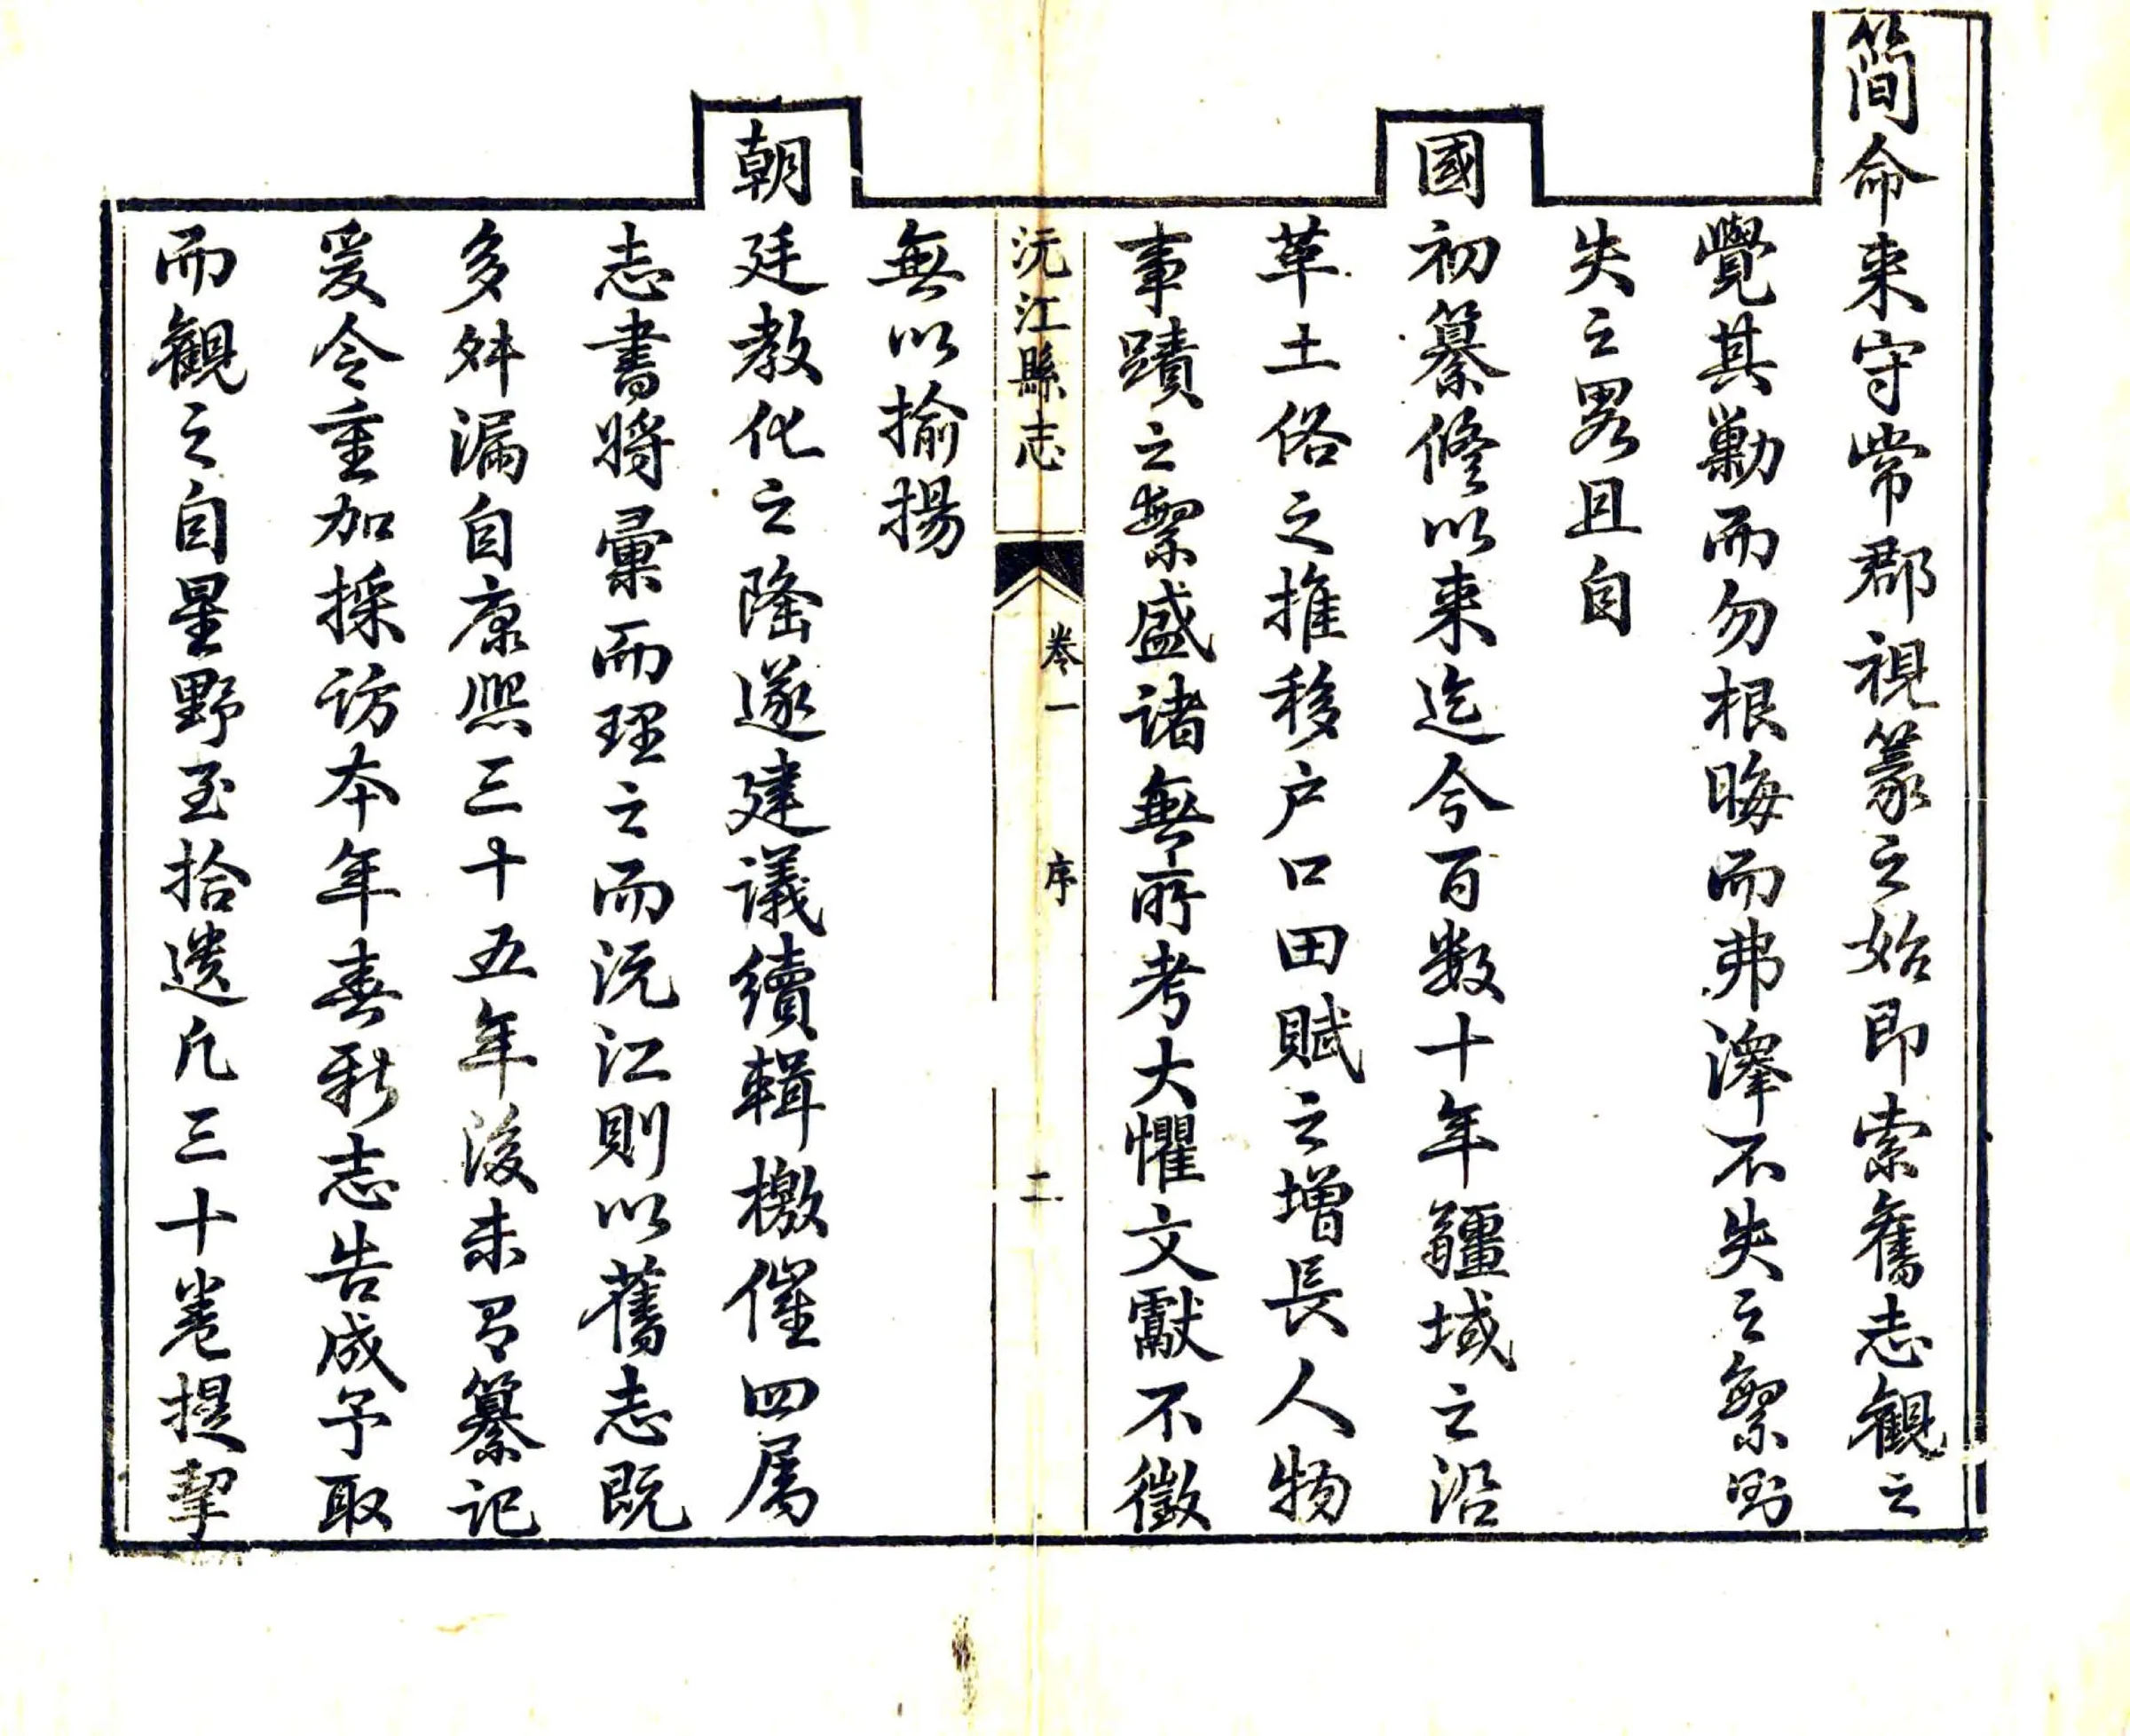 簡命来守常郡視篆之始即索舊志觀之
覺其勦而勿根晦而弗澤不失之繁即
失之畧且自
國初纂修以来迄今百数十年疆域之沿
革土俗之推移户口田賦之增長人物
事蹟之繁盛諸無所考大懼文獻不徵
沅江縣志 卷一 序 二
無以揄揚
朝廷教化之隆遂建議續輯檄催四属
志書將彙而理之而沅江則以舊志既
多舛漏自康熙三十五年後未有纂記
爰令重加採訪本年春新志告成予取
而觀之自星野至拾遺凡三十卷提挈